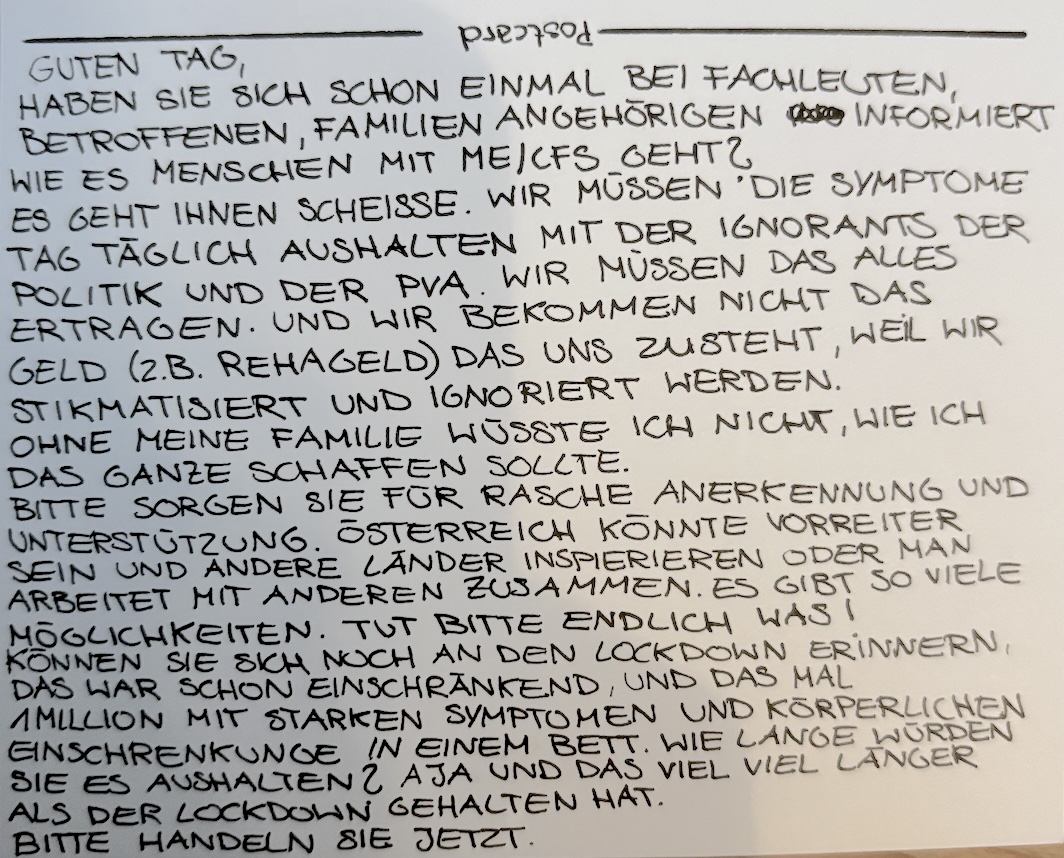 Postcard
GUTEN TAG,
HABEN SIE SICH SCHON EINMAL BEI FACHLEUTEN,
BETROFFENEN, FAMILIEN ANGEHÖRIGEN INFORMIERT
WIE ES MENSCHEN MIT ME/CFS GEHT?
ES GEHT IHNEN SCHEISSE. WIR MÜSSEN DIE SYMPTOME
TAG TÄGLICH AUSHALTEN MIT DER IGNORANTS DER
POLITIK UND DER PVA. WIR MÜSSEN DAS ALLES
ERTRAGEN. UND WIR BEKOMMEN NICHT DAS
GELD (Z.B. REHAGELD) DAS UNS ZUSTEHT, WEIL WIR
STIKMATISIERT UND IGNORIERT WERDEN.
OHNE MEINE FAMILIE WÜSSTE ICH NICHT, WIE ICH
DAS GANZE SCHAFFEN SOLLTE.
BITTE SORGEN SIE FÜR RASCHE ANERKENNUNG UND
UNTERSTÜTZUNG. ÖSTERREICH KÖNNTE VORREITER
SEIN UND ANDERE LÄNDER INSPIERIEREN ODER MAN
ARBEITET MIT ANDEREN ZUSAMMEN. ES GIBT SO VIELE
MÖGLICHKEITEN. TUT BITTE ENDLICH WAS!
KÖNNEN SIE SICH NOCH AN DEN LOCKDOWN ERINNERN,
DAS WAR SCHON EINSCHRÄNKEND, UND DAS MAL
1 MILLION MIT STARKEN SYMPTOMEN UND KÖRPERLICHEN
EINSCHRENKUNGE IN EINEM BETT. WIE LANGE WÜRDEN
SIE ES AUSHALTEN? AJA UND DAS VIEL VIEL LÄNGER
ALS DER LOCKDOWN GEHALTEN HAT.
BITTE HANDELN SIE JETZT.